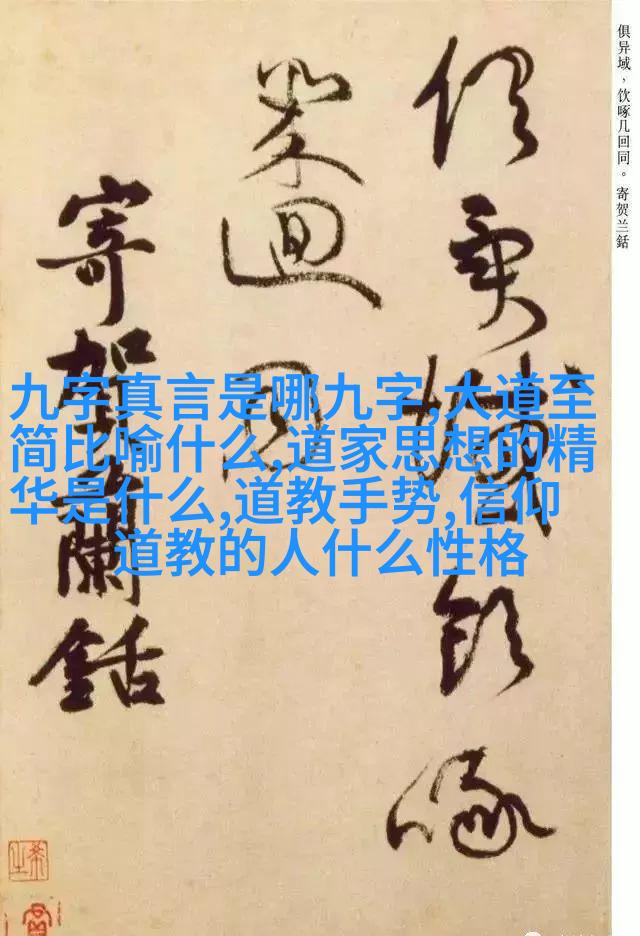 俱异域，饮啄几回同。寄贺兰銛
俱異域飲啄
幾迴同
寄賀蘭銛
九字真言是哪九字,大道至
简比喻什么,道家思想的精
华是什么,道教手势,信仰
道教的人什么性格